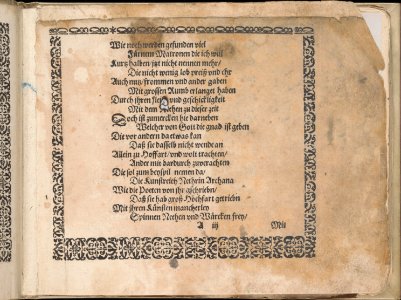 Wie noch werden gefunden viel
Fürnem Matronen die ich wil
Kurtz halben jtzt nicht nennen mehr/
Die nicht wenig lob preiß vnd ehr
Auch nutz/frommen vnd ander gaben
Mit grossen Rumb erlanget haben
Durch ihren fleiß vnd geschickligkeit
Mit dem Nehen zu dieser zeit
Doch ist zumercken hie darneben
Welcher von Gott die gnad ist geben
Die vor andern da etwas kan
Daß sie dasselb nicht wende an
Allein zu Hoffart/ vnd wolt trachten/
Ander mit dardurch zuverachten
Die sol zum beyspil nemen da/
Die Kunstreich Neherin Arachna
Wie die Poeten von jhr geschriebn/
Daß sie hab groß Hochfart getriebn
Mit jhren Künsten mancherley
Spinnen Nehen vnd Würcken frey/
A iij Mit